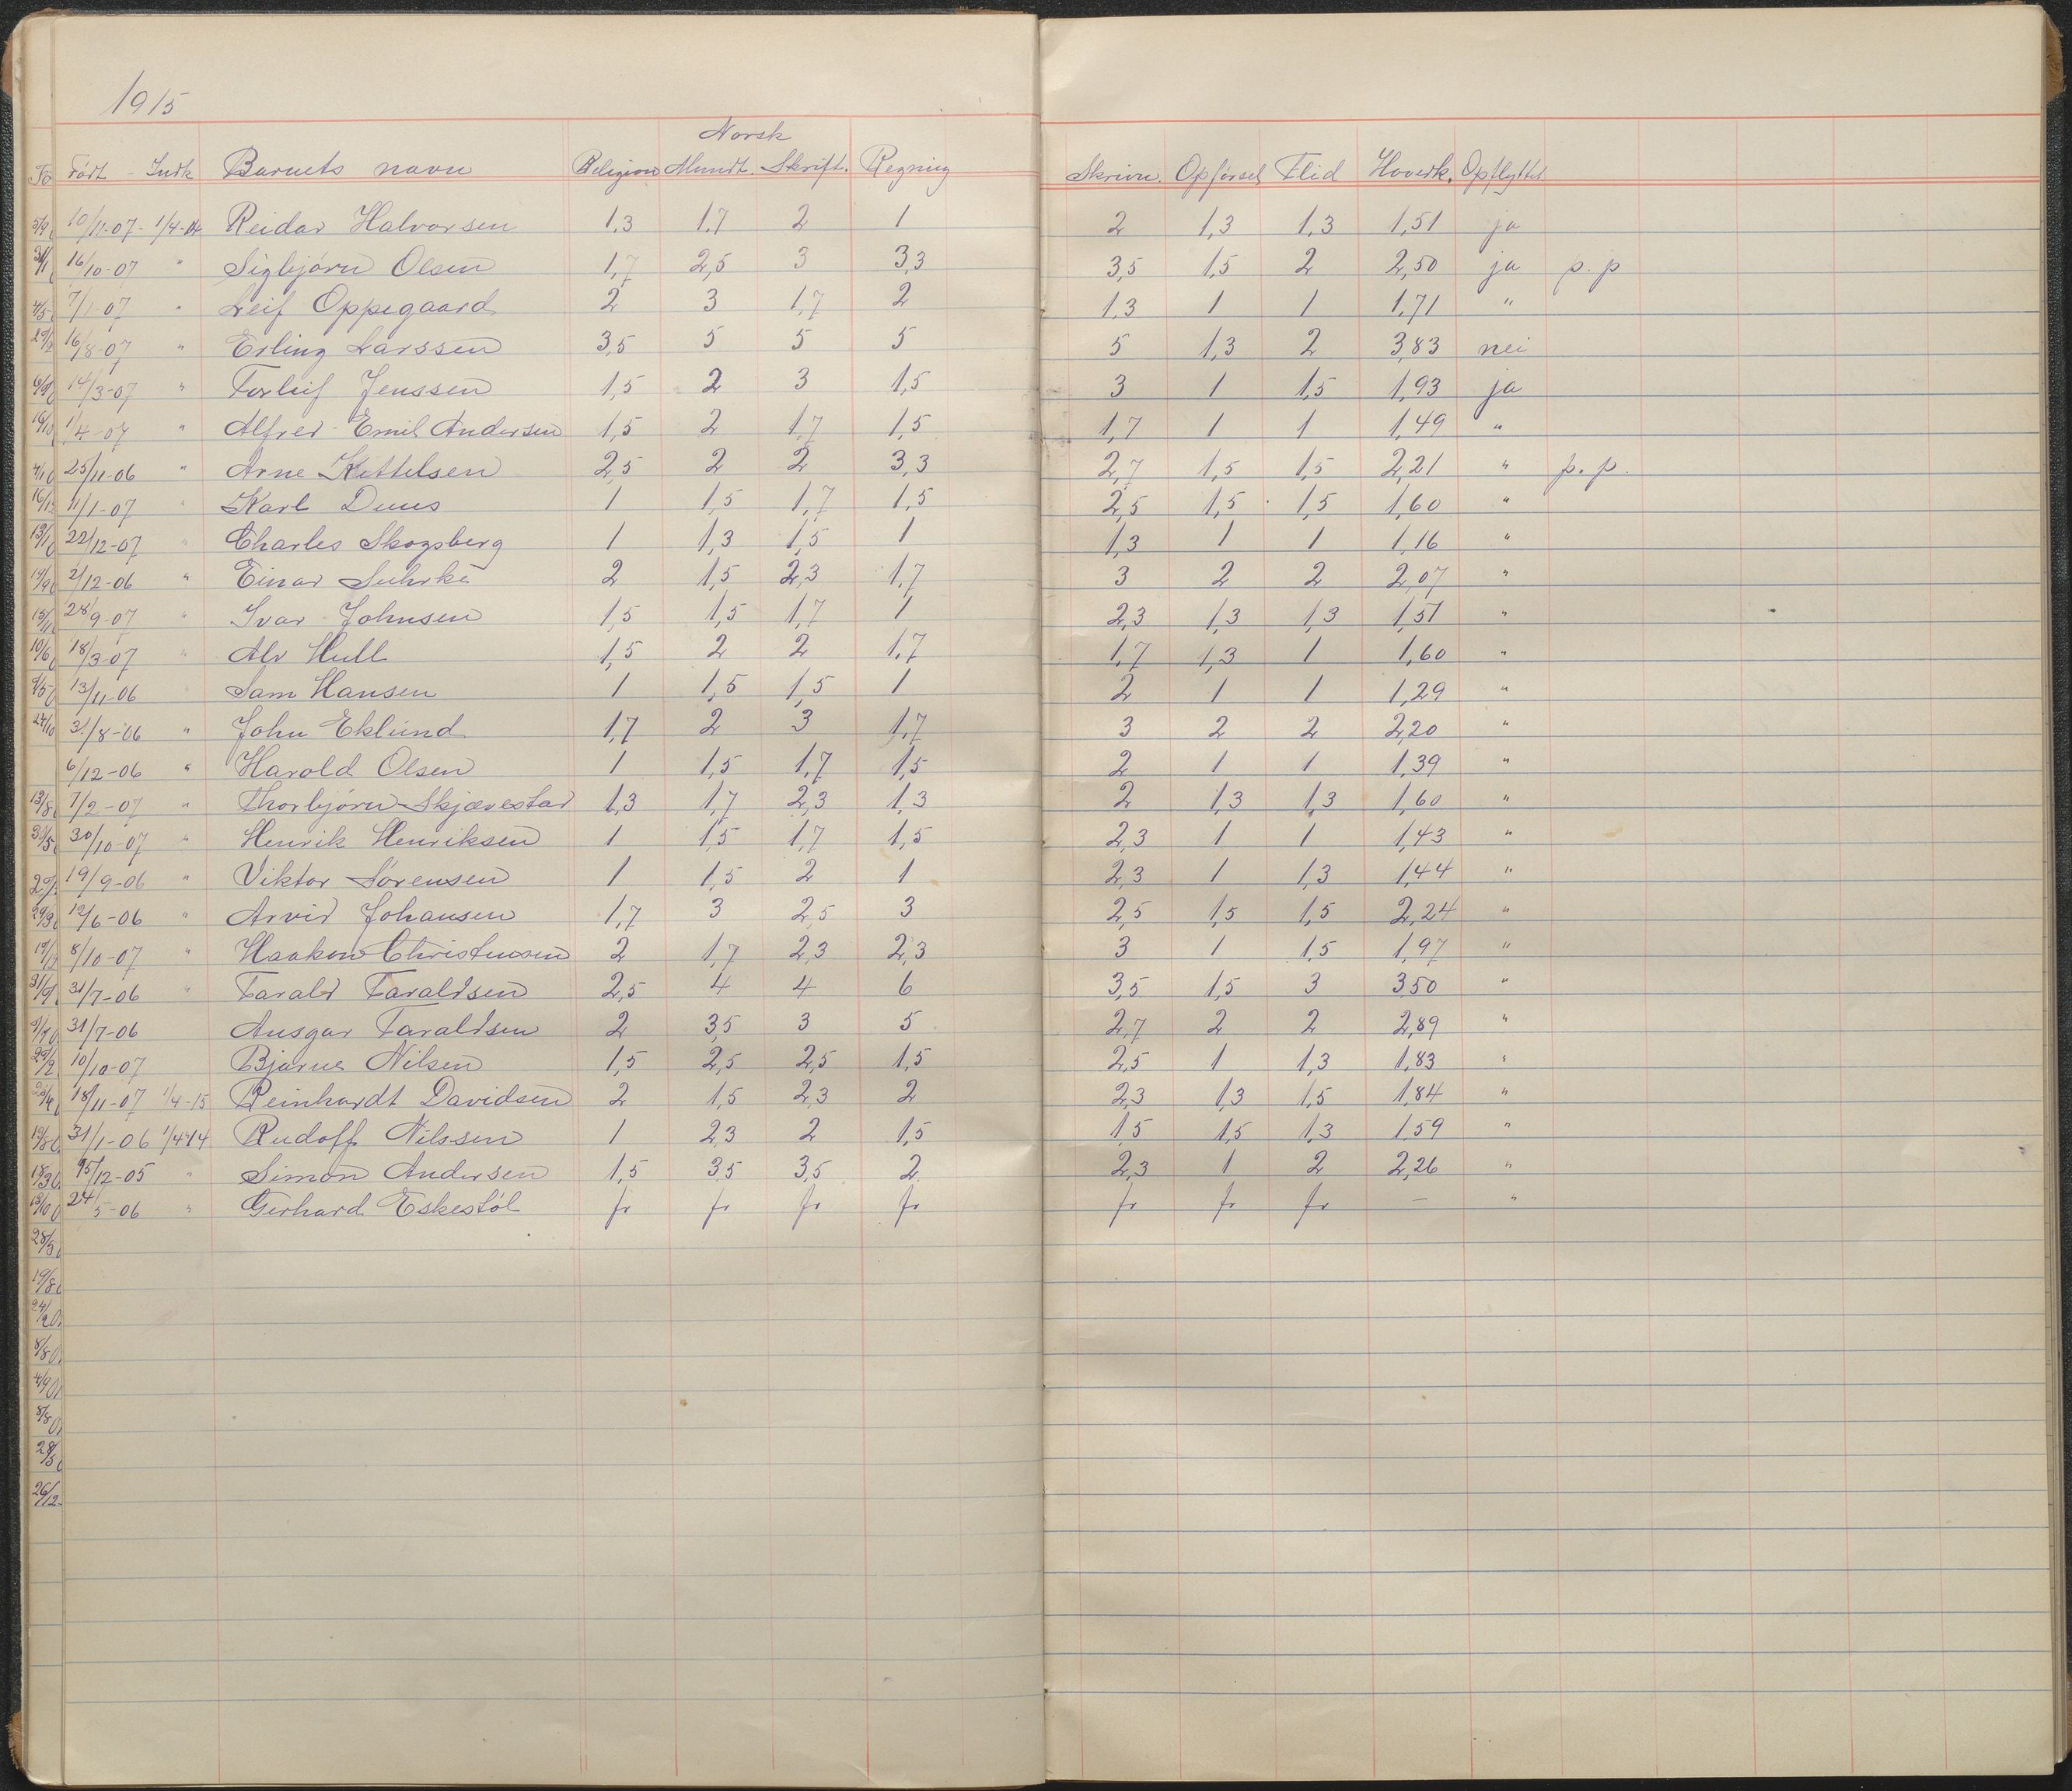 1915
Norsk
Født - Indk Barnets navn Religion Mundt. Skrift. Regning Skrivn. Opførsel Flid Hoverk. Opflyttet
10/11-07 - 1/4-14 Reidar Halvorsen 1,3 1,7 2 1 2 1,3 1,3 1,51 ja
16/10-07 " Sigbjørn Olsen 1,7 2,5 3 3,3 3,5 1,5 2 2,50 ja p.p
7/1-07 " Leif Oppegaard 2 3 1,7 2 1,3 1 1 1,71 "
16/8-07 " Erling Larssen 3,5 5 5 5 5 1,3 2 3,83 nei
14/3-07 " Torleif Jenssen 1,5 2 3 1,5 3 1 1,5 1,93 ja
1/4-07 " Alfred Emil Andersen 1,5 2 1,7 1,5 1,7 1 1 1,49 "
25/11-06 " Arne Kettelsen 2,5 2 2 3,3 2,7 1,5 1,5 2,21 " p.p.
11/1-07 " Karl Duus 1 1,5 1,7 1,5 2,5 1,5 1,5 1,60 "
22/12-07 " Charles Skogsberg 1 1,3 1,5 1 1,3 1 1 1,16 "
2/12-06 " Einar Suhrke 2 1,5 2,3 1,7 3 2 2 2,07 "
28/9-07 " Ivar Johnsen 1,5 1,5 1,7 1 2,3 1,3 1,3 1,51 "
18/3-07 " Alv Hull 1,5 2 2 1,7 1,7 1,3 1 1,60 "
13/11-06 " Sam Hansen 1 1,5 1,5 1 2 1 1 1,29 "
31/8-06 " John Eklund 1,7 2 3 1,7 3 2 2 2,20 "
6/12-06 " Harald Olsen 1 1,5 1,7 1,5 2 1 1 1,39 "
7/2-07 " Thorbjørn Skjævestad 1,3 1,7 2,3 1,3 2 1,3 1,3 1,60 "
30/10-07 " Henrik Henriksen 1 1,5 1,7 1,5 2,3 1 1 1,43 "
19/9-06 " Viktor Sørensen 1 1,5 2 1 2,3 1 1,3 1,44 "
12/6-06 " Arvid Johansen 1,7 3 2,5 3 2,5 1,5 1,5 2,24 "
8/10-07 " Haakon Christensen 2 1,7 2,3 2,3 3 1 1,5 1,97 "
31/7-06 " Tarald Taraldsen 2,5 4 4 6 3,5 1,5 3 3,50 "
31/7-06 Ansgar Taraldsen 2 3,5 3 5 2,7 2 2 2,89 "
10/10-07 Bjarne Nilsen 1,5 2,5 2,5 1,5 2,5 1 1,3 1,83 "
18/11-07 1/4-15 Reinhardt Davidsen 2 1,5 2,3 2 2,3 1,3 1,5 1,84 "
31/1-06 1/4-14 Rudolf Nilssen 1 2,3 2 1,5 1,5 1,5 1,3 1,59 "
15/12-05 " Simon Andersen 1,5 3,5 3,5 2 2,3 1 2 2,26 "
24/5-06 " Gerhard Eskestøl fr fr fr fr fr fr fr — "